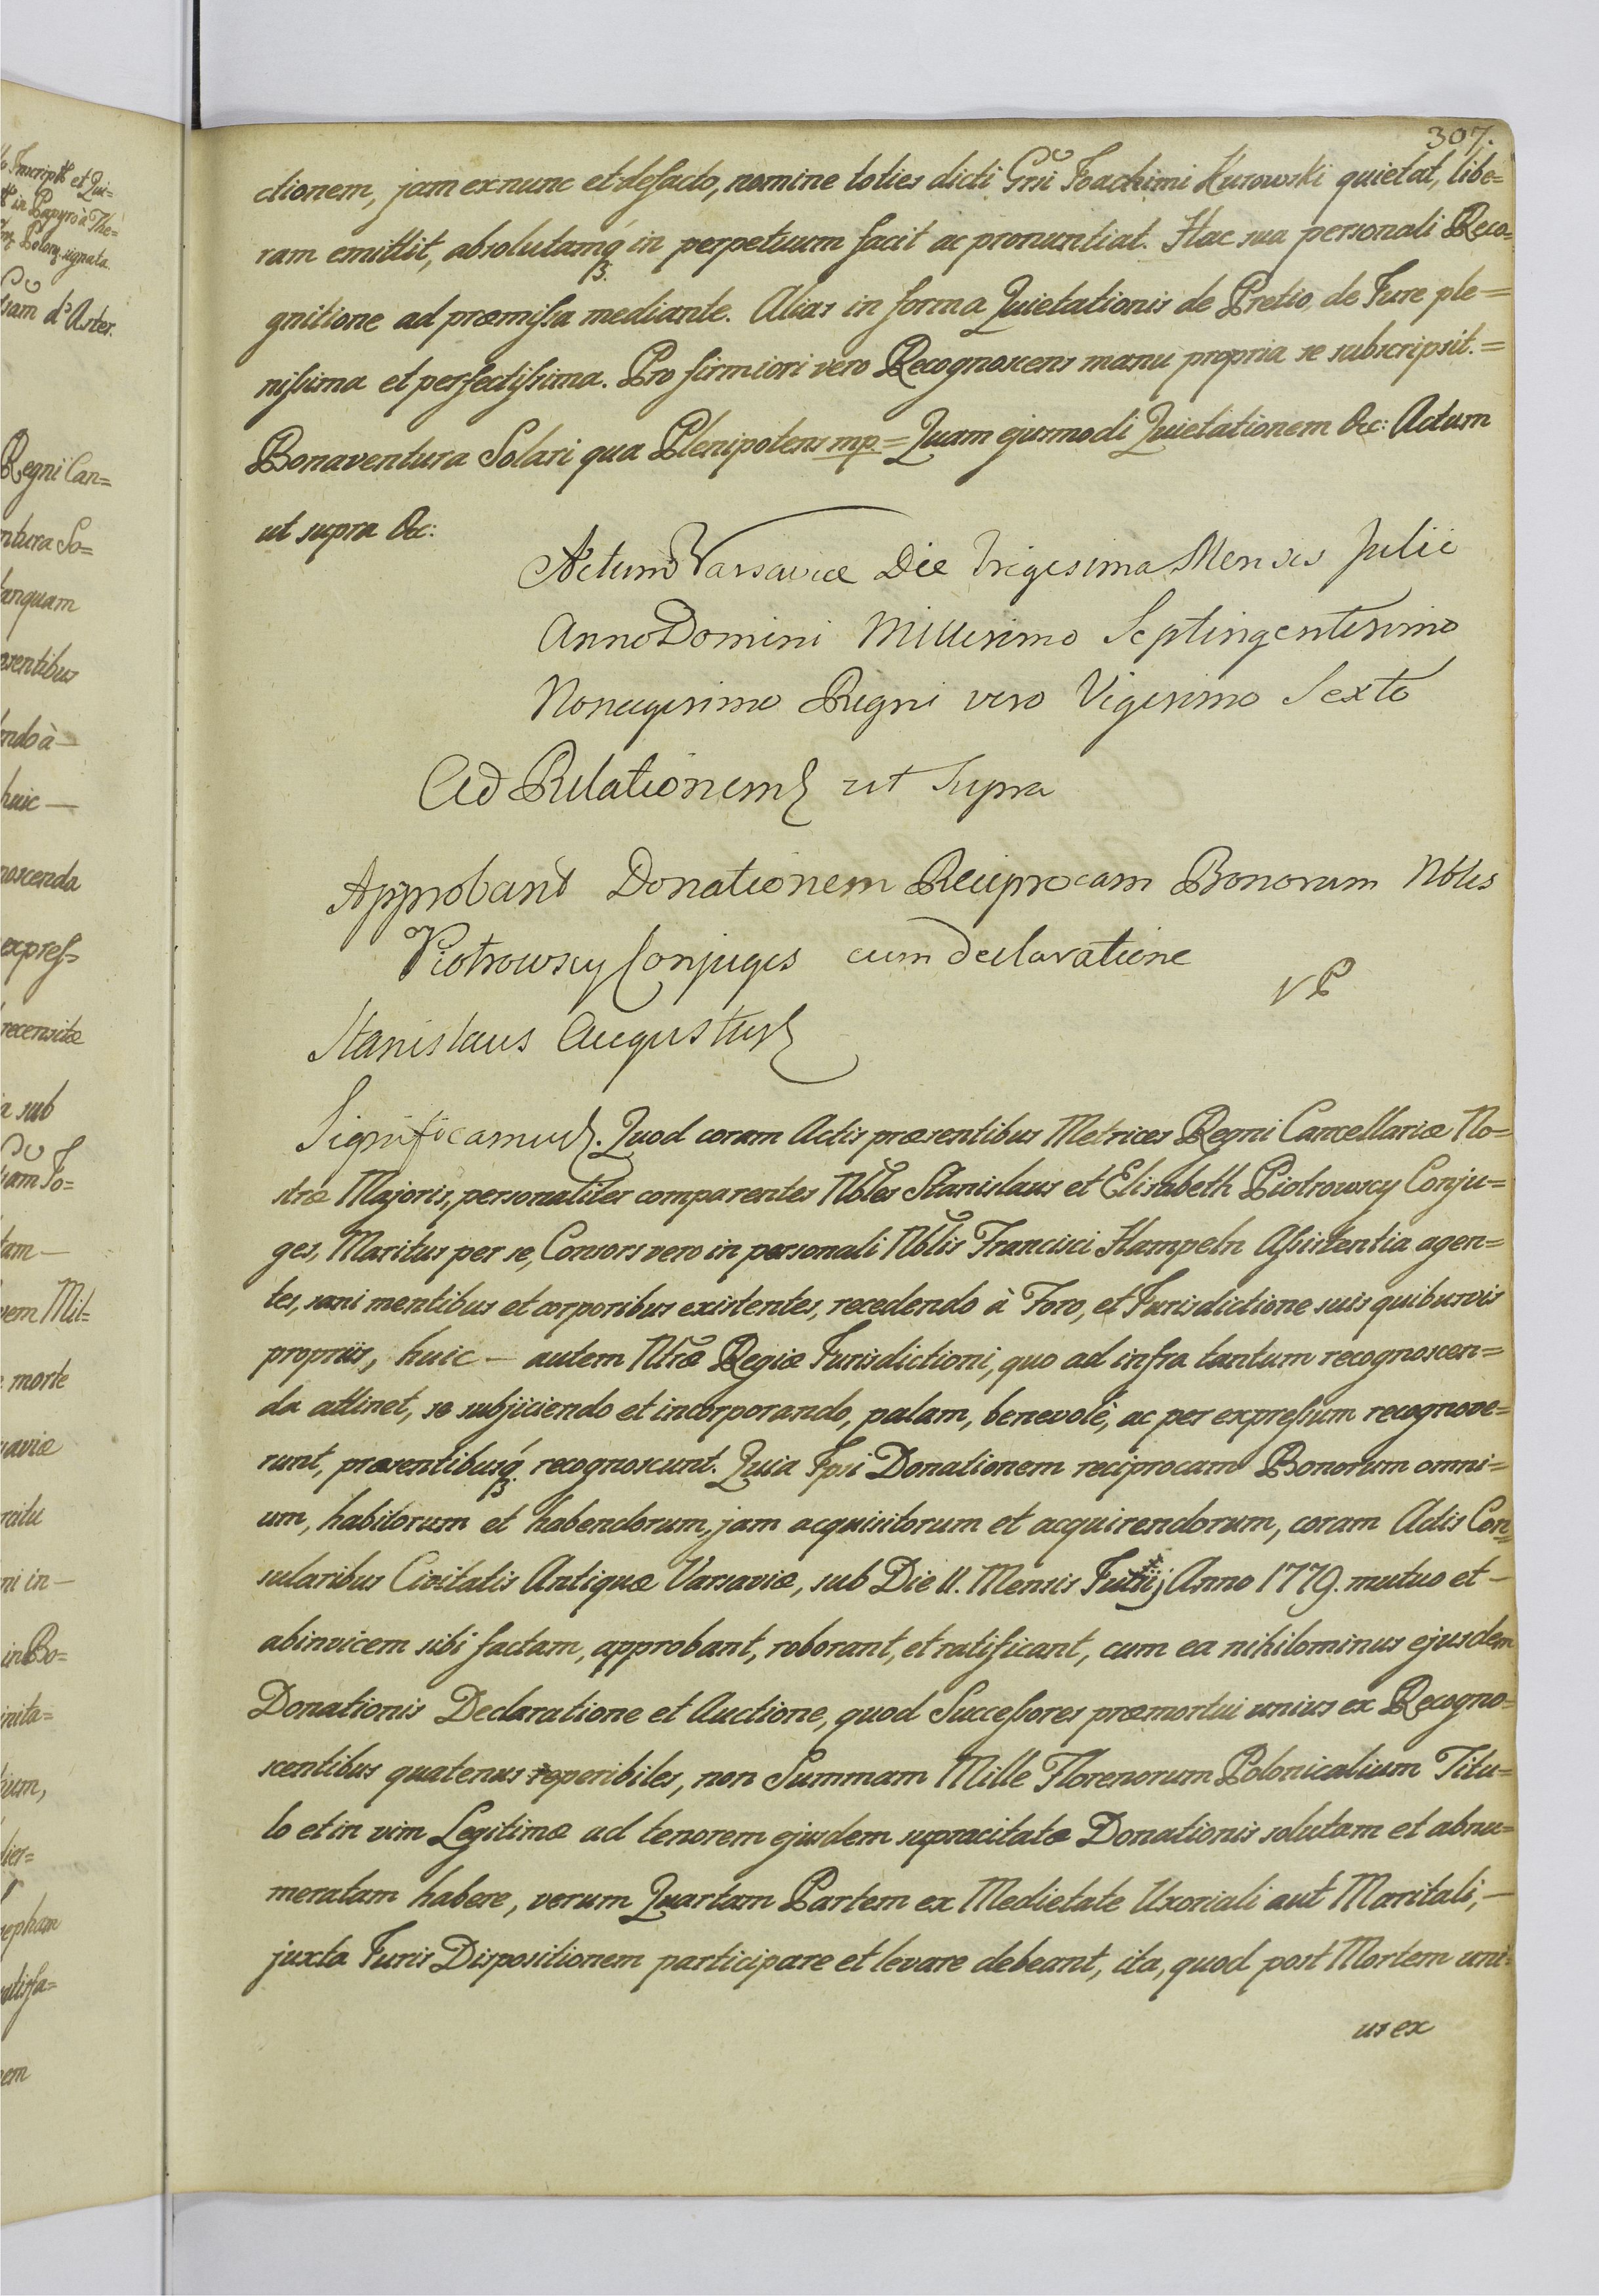 307.
ctionem, jam ex nunc et de facto, nomine toties dicti Gnsi Joachimi Kurowski quietat, libe=
ram emittit, absolutamq́ in perpetuum facit ac pronuntiat. Hac sua personali Reco=
gnitione ad præmissa mediante. Alias in forma Quietationis de Pretio, de Jure ple=
nissima et perfectissima. Pro firmiori vero Recognoscens manu propria se subscripsit.=
Bonaventura Solari qua Plenipotens mp.= Quam ejusmodi Quietationem &c: Actum
ut supra &c:
Actum Varsaviæ Die Trigesima Mensis Julii
Anno Domini Millesimo Septingentesimo
Nonagesimo Regni vero Vigesimo Sexto
Ad Relationem ut supra
Approbant Donationem Reciprocam Bonorum Nbles
Piotrowscy Conjuges cum Declaratione
VP
Stanislaus Augustus
Significamus. Quod coram Actis præsentibus Metrices Regni Cancellariæ No=
stræ Majoris, personaliter comparentes Nbles Stanislaus et Elisabeth Piotrowscy Conju=
ges, Maritus per se, Consors vero in personali Nblis Francisci Hampeln Assistentia agen=
tes, sani mentibus et corporibus existentes, recedendo à Foro, et Jurisdictione suis quibusvis
propriis, huic — autem Ntræ Regiæ Jurisdictioni, quo ad infra tantum recognoscen=
da attinet, se subjiciendo et incorporando, palam, benevolè, ac per expressum recognove=
runt, præsentibusq́ recognoscunt. Quia Ipsi Donationem reciprocam Bonorum omni=
um, habitorum et habendorum, jam acquisitorum et acquirendorum, coram Actis Con=
sularibus Civitatis Antiquæ Varsaviæ, sub Die 11. Mensis Anno 1779. mutuo et —
abinvicem sibi factam, approbant, roborant, et ratificant, cum ea nihilominus ejusdem
Donationis Declaratione et Auctione, quod Successores præmortui unius ex Recogno=
scentibus quatenus reperibiles, non Summam Mille Florenorum Polonicalium Titu=
lo et in vim Legitimæ ad tenorem ejusdem supracitatæ Donationis solutam et abnu=
meratam habere, verum Quartam Partem ex Medietate Uxoriali aut Maritali, —
juxta Juris Dispositionem participare et levare debeant, ita, quod post Mortem uni=
us ex